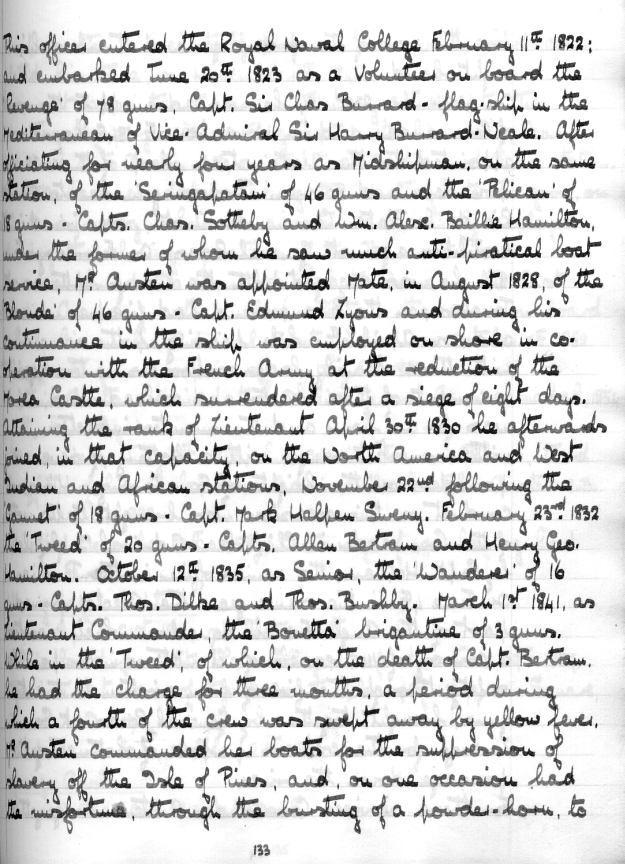 This officer entered the Royal Naval College February 11th 1822;
and embarked June 20th 1823 as a Volunteer on board the
'Revenge' of 78 guns, Capt. Sir Chas Burrard - flag-ship in the
Mediterranean of Vice-Admiral Sir Harry Burrard-Neale. After
officiating for nearly four years as Midshipman, on the same
station, of the 'Seringapatam' of 46 guns and the 'Pelican' of
18 guns - Capts. Chas. Sotheby and Wm. Alex. Baillie Hamilton,
under the former of whom he saw much anti-piratical boat
service, Mr Austen was appointed Mate, in August 1828, of the
'Blonde' of 46 guns - Capt. Edmund Lyons and during his
continuance in the ship was employed on shore in co-
operation with the French Army at the reduction of the
Morea Castle, which surrendered after a siege of eight days.
Attaining the rank of Lieutenant April 30th 1830 he afterwards
joined, in that capacity, on the North America and West
Indian and African stations, November 22nd following the
'Gannet' of 18 guns - Capt. Mark Halpen Sweny. February 23rd 1832
the 'Tweed' of 20 guns - Capts. Allen Bertram and Henry Geo.
Hamilton. October 12th 1835, as Senior, the 'Wanderer' of 16
guns - Capts. Thos. Dilke and Thos. Bushby. March 1st 1841, as
Lieutenant Commander, the 'Bonetta' brigantine of 3 guns.
While in the 'Tweed', of which, on the death of Capt. Bertram,
he had the charge for three months, a period during
which a fourth of the crew was swept away by yellow fever,
Mr Austen commanded her boats for the suppression of
slavery off the Isle of Pines, and, on one occasion had
the misfortune, through the bursting of a powder-horn, to
133